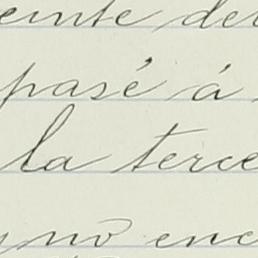 einte de
pasé á
la terce
y no enc